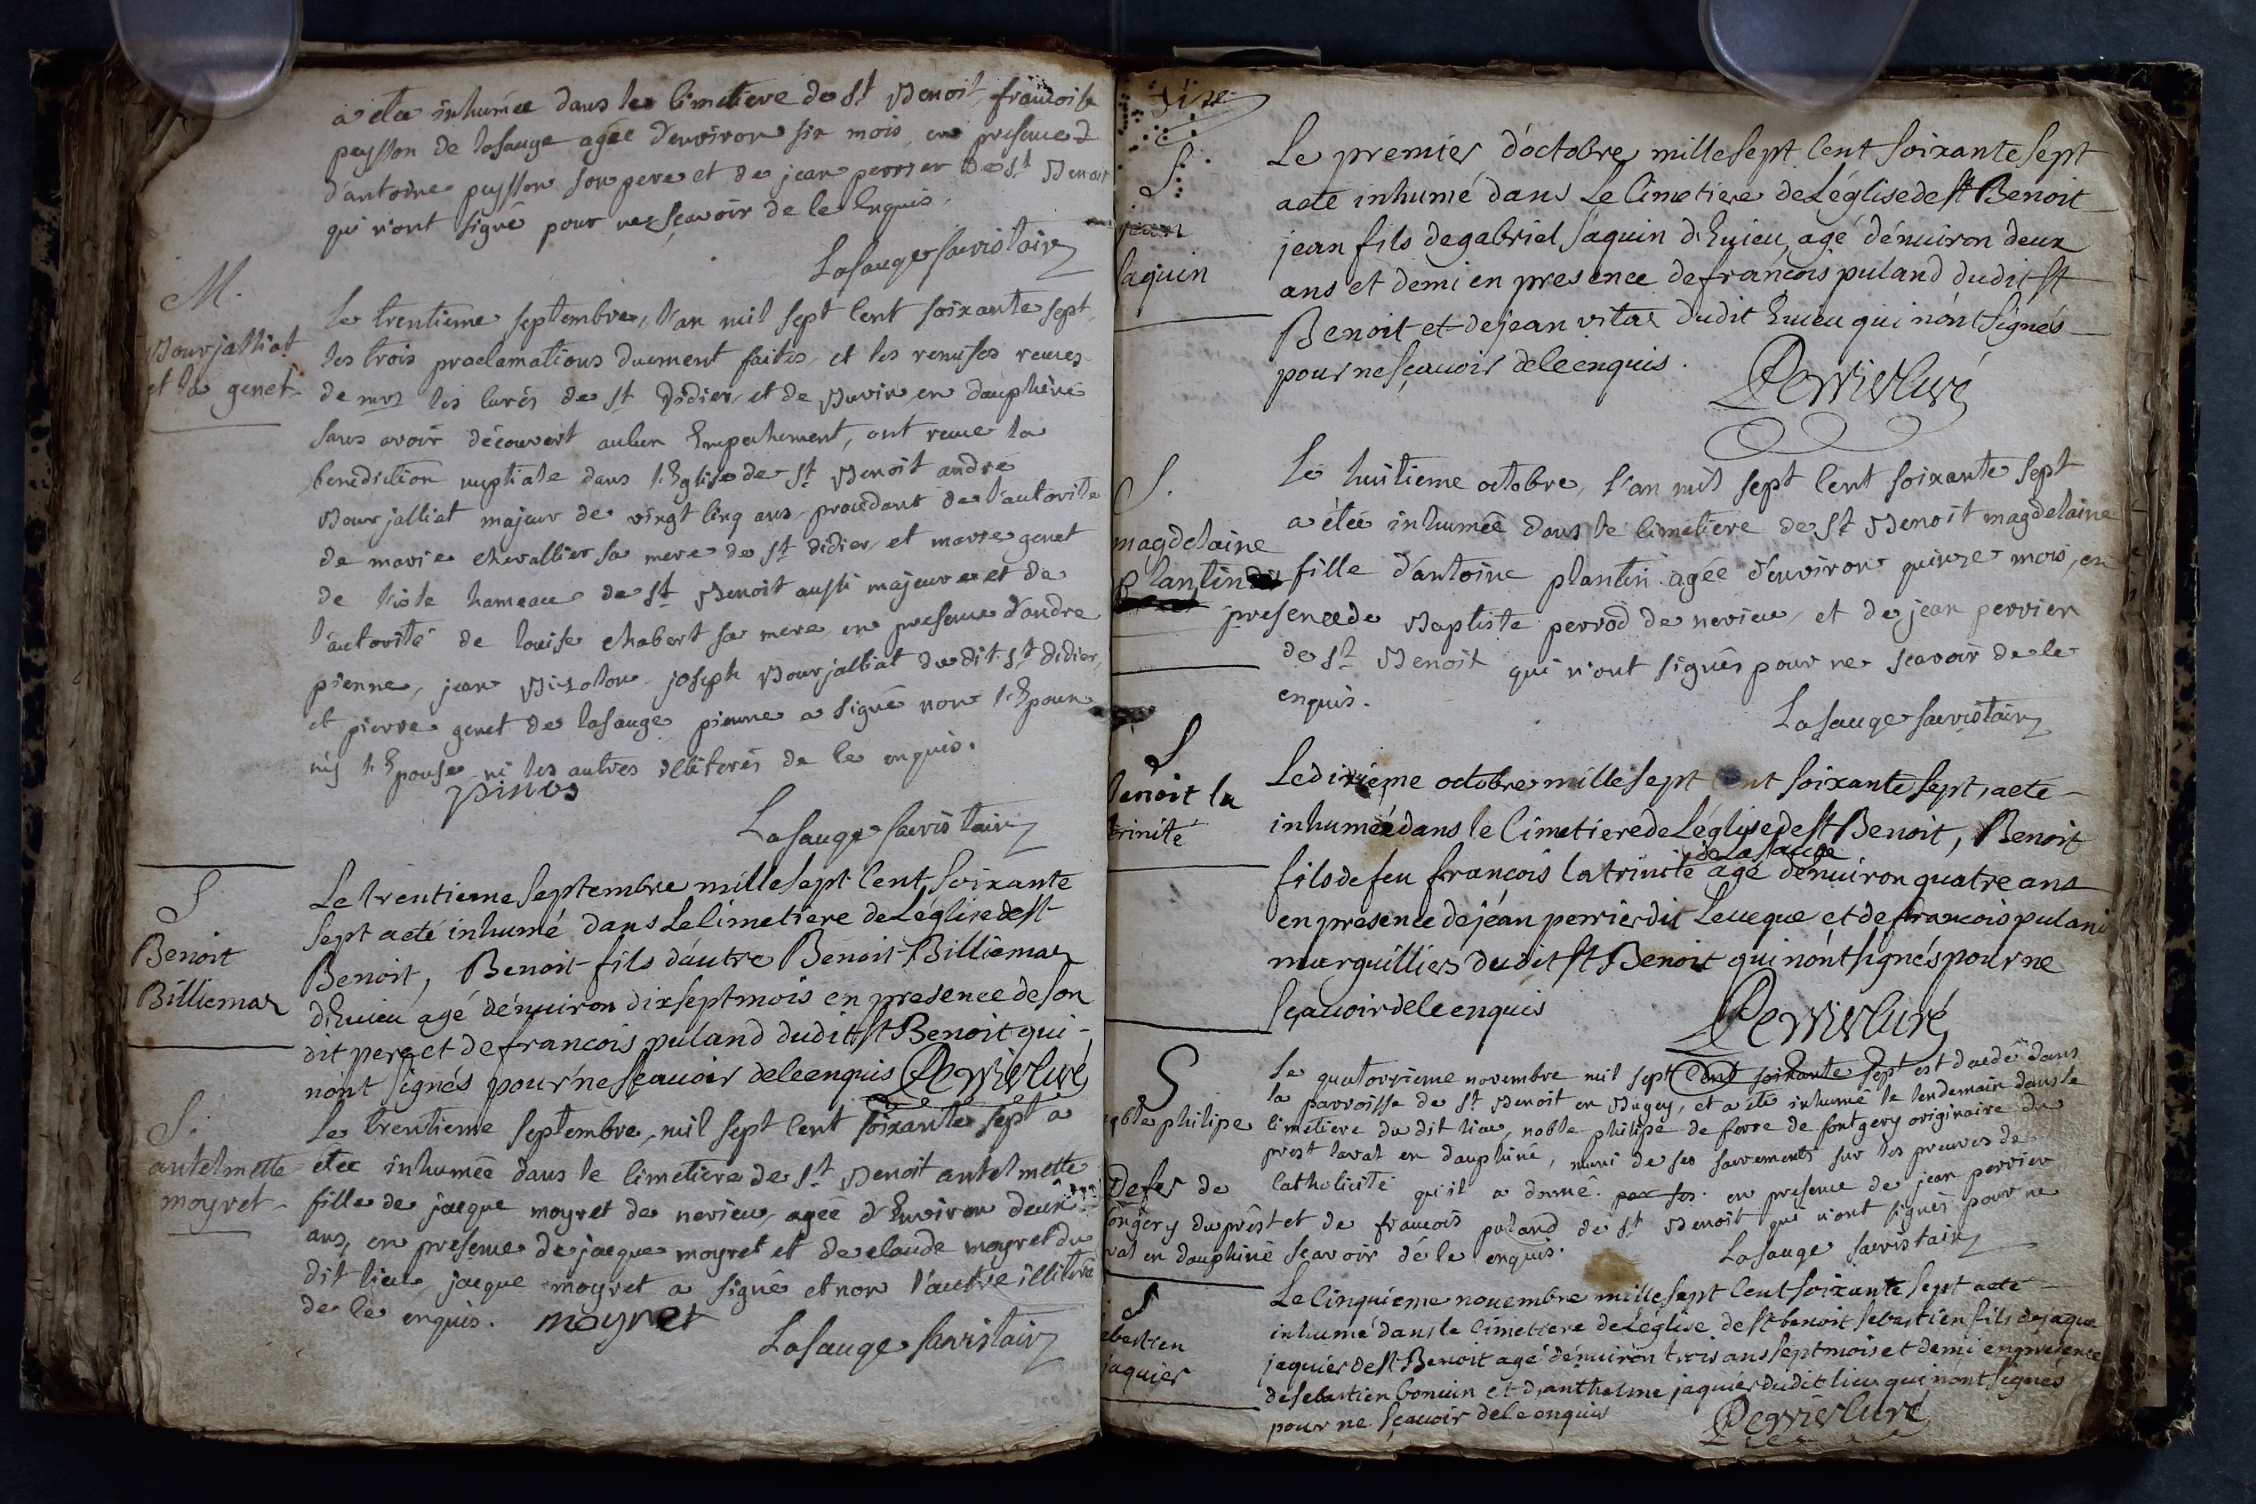 a etee inhumée dans le cimetiere de st Benoit, francoise
peysson de lasauge agée d'environ six mois, en presence d
d'antoine peysson son pere et de jean perrier de st Benoit
qui n'ont signé pour ne sçavoir de le Enquis.
Lasauge sacristain
M.
Bourjalliat
et la genet
Le trentieme septembre, l'an mil sept cent soixante sept,
les trois proclamations duement faites et les remises reçues
de mrs les curés de st Didier et de Buvin en dauphiné
sans avoir découvert aucun Empechement, ont recue la
benediction nuptiale dans l'Eglise de st Benoit andré
Bourjalliat majeur de vingt cinq ans procedant de l'autorité
de marie chevallier sa mere de st didier, et marie genet
de l'isle hameau de st Benoit aussi majeure et de
l'autorité de louise chabert sa mere en presence d'andre
pienne, jean Bizolon joseph Bourjalliat du dit st didier,
et pierre genet de lasauge pienne a signé non l'Epoux
nij l'Epouse ni les autres illiterés de le enquis.
pinos
Lasauge sacristain
S
Benoit
Billiemaz
Le trentieme septembre mille sept cent soixante
sept a eté inhumé dans Le Cimetiere de L'église de st
Benoit, Benoit fils d'autre Benoit Billiemaz
d'Euieu agé d'énuiron dix sept mois en presence de son
dit pere et de francois puland dudit st Benoit qui
n'ont signés pour ne sçauoir de le enquis Perrier Curé
S.
antelmette
moyret
Le trentieme septembre, mil sept cent soixante sept a
étée inhumée dans le cimetiere de st Benoit antelmette
fille de jacque moyret de nerieu, agée d'Environ deux
ans, en presence de jacque moyret et de claude moyret du
dit lieu jacque moyret a signé et non l'autre illiteré
de le enquis. moyret
Lasauge sacristain
S.
jean
saquin
Le premier d'octobre mille sept Cent soixante sept
a eté inhumé dans Le Cimetiere de L'église de st Benoit
jean fils de gabriel saquin d'Euieu agé d'énuiron deux
ans et demi en presence de françois puland dudit st
Benoit et de jean vital dudit Euieu qui n'ont signés
pour ne sçauoir de le enquis. Perrier Curé
S.
magdelaine
plantin
Le huitieme octobre, l'an mil sept cent soixante sept
a étée inhumée dans le cimetiere de st Benoit magdelaine
fille d'antoine plantin agée d'environ quinze mois, en
presence de Baptiste perrod de nerieu, et de jean perrier
de st Benoit qui n'ont signés pour ne sçavoir de le
enquis.
Lasauge sacristain
S
benoit la
trinité
Le dixième octobre mille sept cent soixante sept, a eté
inhumé dans le Cimetiere de L'église de st Benoit, Benoit
de la sauge
fils de feu françois la trinité agé d'énuiron quatre ans
en presence de jéan perrier dit Leueque et de francois puland
marguillier dudit st Benoit qui n'ont signés pour ne
sçauoir de le enquis Perrier Curé
S
noble philipe
Defer de
fongery du prêst
val en dauphiné
Le quatorzieme novembre mil sept cent soixante sept est decedé dans
la parroisse de st Benoit en Bugey, et a été inhumé le lendemain dans le
cimetiere du dit lieu, noble philipe de ferre de fontgery originaire du
prest laval en dauphiné, muni de ses sacrements sur les preuves de
catholicité qu'il a donné. en presence de jean perrier
et de francois puland de st Benoit qui n'ont signés pour ne
sçavoir dé le enquis.
Lasauge sacristain
S
sebastien
jaquier
Le Cinquieme nouembre mille sept Cent soixante sept a eté
inhumé dans le Cimetiere de L'église de st benoit sebastien fils de jaque
jaquier de st Benoit agé d'énuiron trois ans sept mois et demi en presence
de sebastien bonuin et d'anthelme jaquier dudit lieu qui n'ont signés
pour ne sçauoir de le enquis Perrier Curé